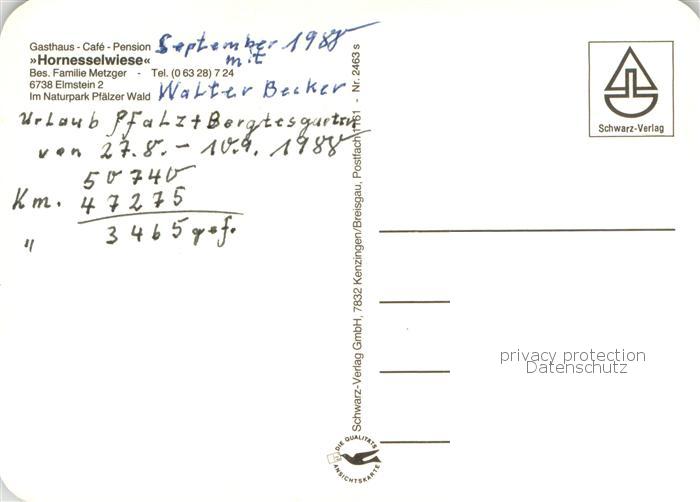 Gasthaus - Café - Pension
»Hornesselwiese«
Bes. Familie Metzger - Tel. (0 63 28) 7 24
6738 Elmstein 2
Im Naturpark Pfälzer Wald
September 1988
mit
Walter Becker
Urlaub Pfalz + Bergtesgarten
von 27.8. - 10.9. 1988
50740
Km. 47275
" 3465 gef.
Schwarz-Verlag GmbH, 7832 Kenzingen/Breisgau, Postfach 1161 - Nr. 2463 s
Schwarz-Verlag
privacy protection
Datenschutz
DIE QUALITÄTS
ANSICHTSKARTE